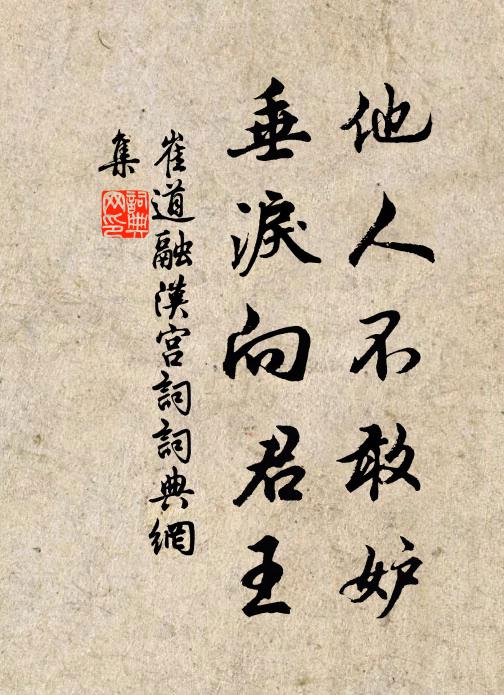 他人不敢妒
垂淚向君王
崔道融漢宮詞詞典網
集
詞典
网印